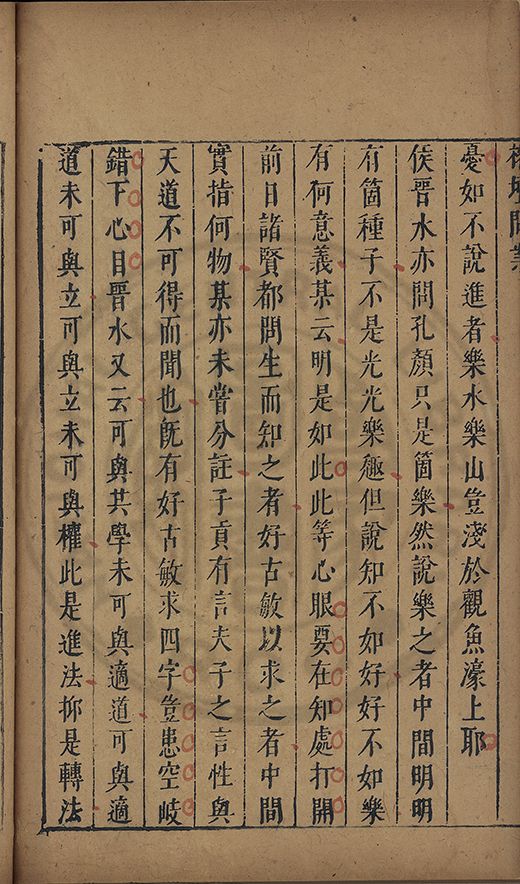 憂如不說進者樂水樂山豈淺於觀魚濠上耶
侯晉水亦問孔顏只是箇樂然說樂之者中間明明
有箇種子不是光光樂趣但說知不如好好不如樂
有何意義某云明是如此此等心眼要在知處打開
前日諸賢都問生而知之者好古敏以求之者中間
實指何物某亦未嘗分註子貢有言夫子之言性與
天道不可得而聞也旣有好古敏求四字豈患空岐
錯下心目晉水又云可與共學未可與適道可與適
道未可與立可與立未可與權此是進法抑是轉法